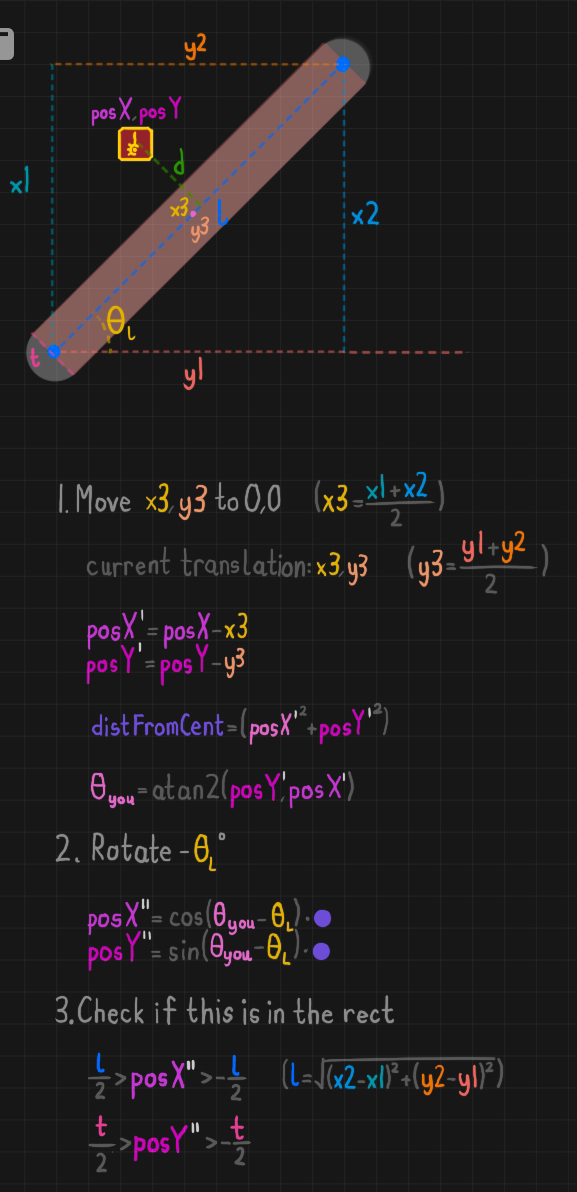 y2
posX, posY
d
x1
x3
l
x2
y3
θL
t
y1
1. Move x3, y3 to 0,0 (x3=(x1+x2)/2)
current translation: x3, y3 (y3=(y1+y2)/2)
posX'=posX-x3
posY'=posY-y3
distFromCent=(posX'²+posY'²)
θyou=atan2(posY',posX')
2. Rotate -θL°
posX"=cos(θyou-θL)·●
posY"=sin(θyou-θL)·●
3. Check if this is in the rect
l/2>posX">-l/2 (l=√((x2-x1)²+(y2-y1)²))
t/2>posY">-t/2